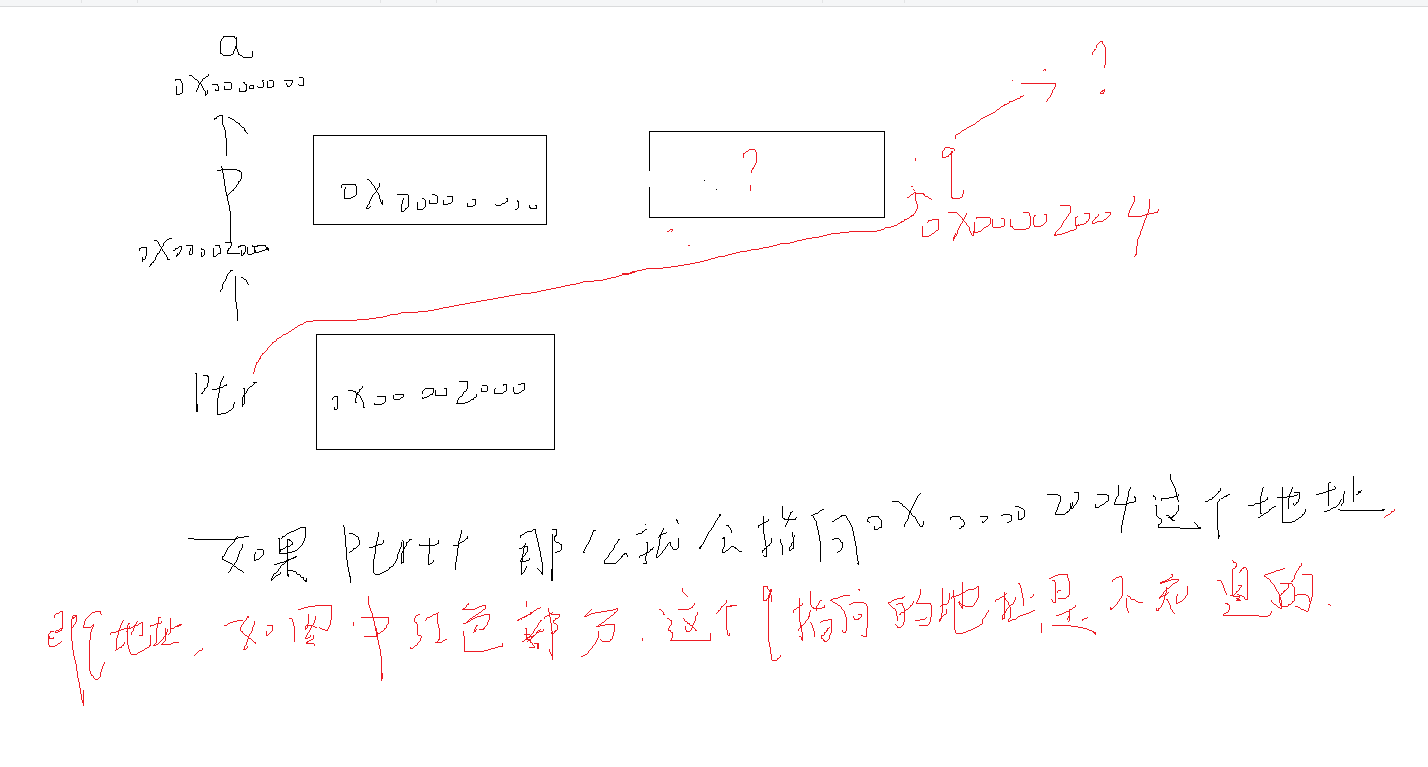 a
0X00000000
?
P
0X00000000
?
q
0X00002000
0X00002004
Ptr
0X00002000
如果 Ptr++ 那么就会指向0X00002004这个地址,
即q地址,如图中红色部分.这个q指向的地址是不知道的.